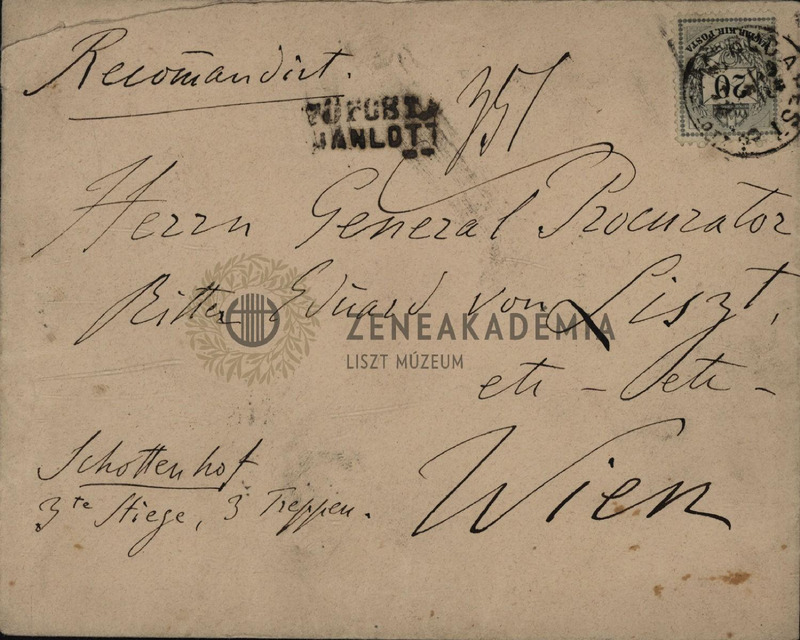 Recom̄andirt.
351
Herrn General Procurator
Ritter Eduard von Liszt,
etc – etc –
Wien
Schottenhof
3te Stiege, 3 Treppen.
AJÁNLOTT
MAGYAR KIR. POSTA
20
BUDAPEST
ZENEAKADÉMIA
LISZT MÚZEUM